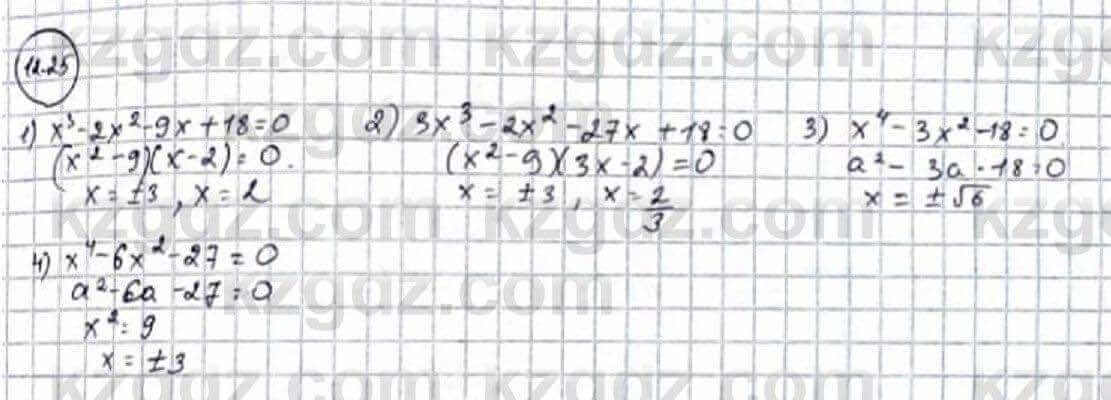 12.25
1) x³-2x²-9x+18=0
(x²-9)(x-2)=0.
x=±3, x=2
2) 3x³-2x²-27x+18=0
(x²-9)(3x-2)=0
x=±3, x=2/3
3) x⁴-3x²-18=0
a²-3a-18=0
x=±√6
4) x⁴-6x²-27=0
a²-6a-27=0
x²=9
x=±3
kzgdz.com
kzgdz.com
kzgdz.com
kzgdz.com
kzgdz.com